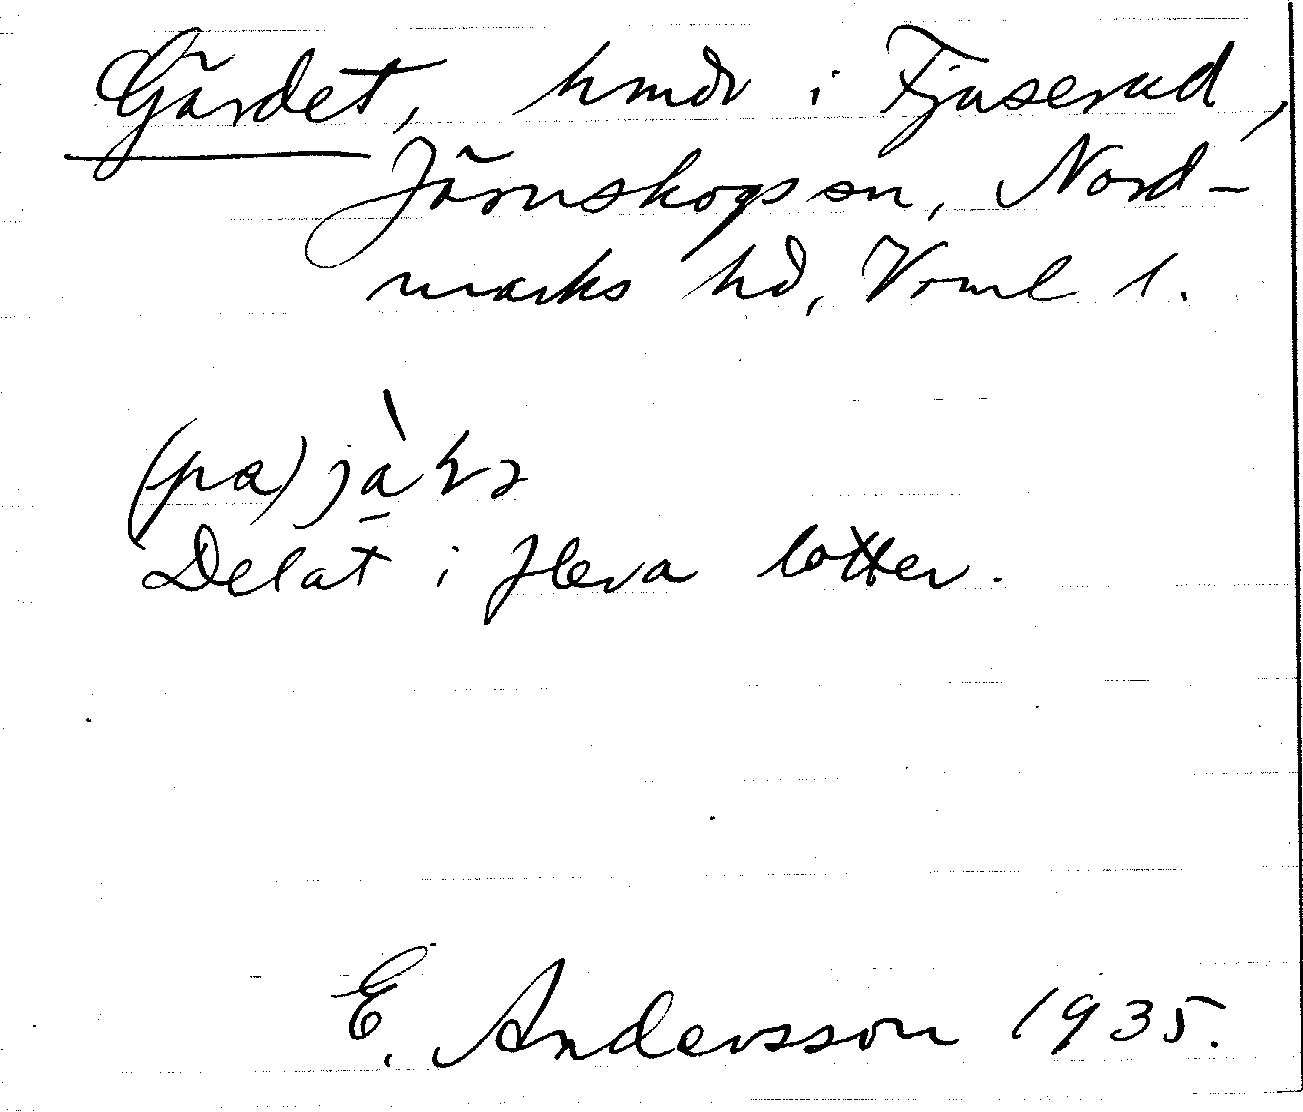 Gärdet, hmdr i Fjuserud,
Järnskogs sn, Nord-
marks hd, Vrml l.
(pa)
Delat i flera lotter.
E. Andersson 1935.